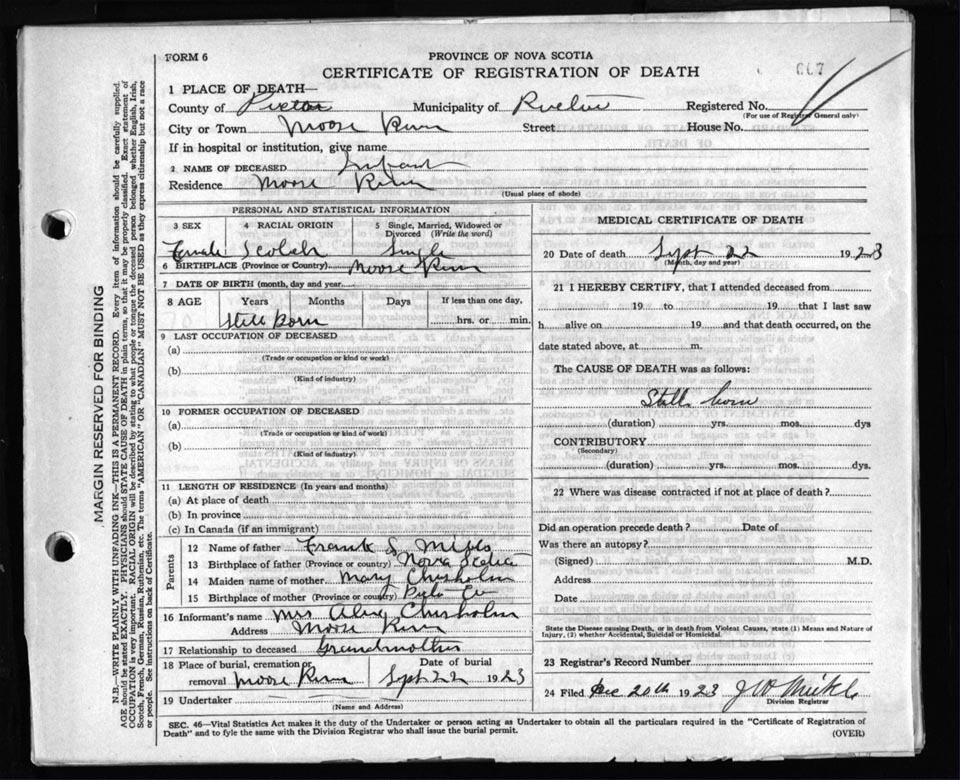 FORM 6
PROVINCE OF NOVA SCOTIA
CERTIFICATE OF REGISTRATION OF DEATH
667
1 PLACE OF DEATH—
County of Pictou Municipality of Registered No.
(For use of Registrar General only)
City or Town Moose River Street House No.
If in hospital or institution, give name
2 NAME OF DECEASED Infant
Residence Moose River
(Usual place of abode)
PERSONAL AND STATISTICAL INFORMATION
3 SEX 4 RACIAL ORIGIN 5 Single, Married, Widowed or Divorced (Write the word)
Female Scotch Single
6 BIRTHPLACE (Province or Country) Moose River
7 DATE OF BIRTH (month, day and year)
8 AGE Years Months Days If less than one day,
Still Born hrs. or min.
9 LAST OCCUPATION OF DECEASED
(a)
(Trade or occupation or kind of work)
(b)
(Kind of industry)
10 FORMER OCCUPATION OF DECEASED
(a)
(Trade or occupation or kind of work)
(b)
(Kind of industry)
11 LENGTH OF RESIDENCE (In years and months)
(a) At place of death
(b) In province
(c) In Canada (if an immigrant)
Parents
12 Name of father Frank S
13 Birthplace of father (Province or country) Nova Scotia
14 Maiden name of mother Mary Chisholm
15 Birthplace of mother (Province or country)
16 Informant's name Mrs Alex Chisholm
Address Moose River
17 Relationship to deceased Grandmother
18 Place of burial, cremation or removal Moose River Date of burial Sept 22 1923
19 Undertaker
(Name and Address)
MEDICAL CERTIFICATE OF DEATH
20 Date of death Sept 22 1923
(Month, day and year)
21 I HEREBY CERTIFY, that I attended deceased from
19 to 19 that I last saw
h alive on 19 and that death occurred, on the
date stated above, at m.
The CAUSE OF DEATH was as follows:
Still born
(duration) yrs. mos. dys
CONTRIBUTORY
(Secondary)
(duration) yrs. mos. dys.
22 Where was disease contracted if not at place of death?
Did an operation precede death? Date of
Was there an autopsy?
(Signed) M.D.
Address
Date
State the Disease causing Death, or in death from Violent Causes, state (1) Means and Nature of
Injury, (2) whether Accidental, Suicidal or Homicidal.
23 Registrar's Record Number
24 Filed Dec 20th 1923
Division Registrar
SEC. 46—Vital Statistics Act makes it the duty of the Undertaker or person acting as Undertaker to obtain all the particulars required in the "Certificate of Registration of
Death" and to fyle the same with the Division Registrar who shall issue the burial permit.
(OVER)
MARGIN RESERVED FOR BINDING
N.B.—WRITE PLAINLY WITH UNFADING INK—THIS IS A PERMANENT RECORD. Every item of information should be carefully supplied.
AGE should be stated EXACTLY. PHYSICIANS should STATE CAUSE OF DEATH in plain terms, so that it may be properly classified. Exact statement of
OCCUPATION is very important. RACIAL ORIGIN will be described by stating to what people or tongue the deceased person belonged whether English, Irish,
Scotch, French, German, Russian, Ruthenian, etc. The terms "AMERICAN" OR "CANADIAN" MUST NOT BE USED as they express citizenship but not a race
or people. See instructions on back of Certificate.